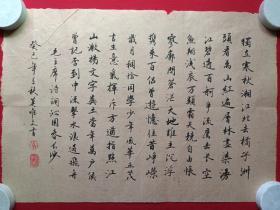 獨立寒秋湘江北去橘子洲
頭看萬山紅遍層林盡染漫
江碧透百舸爭流鷹击长空
魚翔淺底萬類霜天競自由悵
寥廓問蒼茫大地誰主沉浮
攜來百侶曾遊憶往昔崢嶸
歲月稠恰同學少年風華正茂
書生意氣揮斥方遒指點江
山激揚文字糞土當年萬戶侯
曾記否到中流擊水浪遏飛舟
毛主席詩詞沁園春長沙
癸巳年秋書